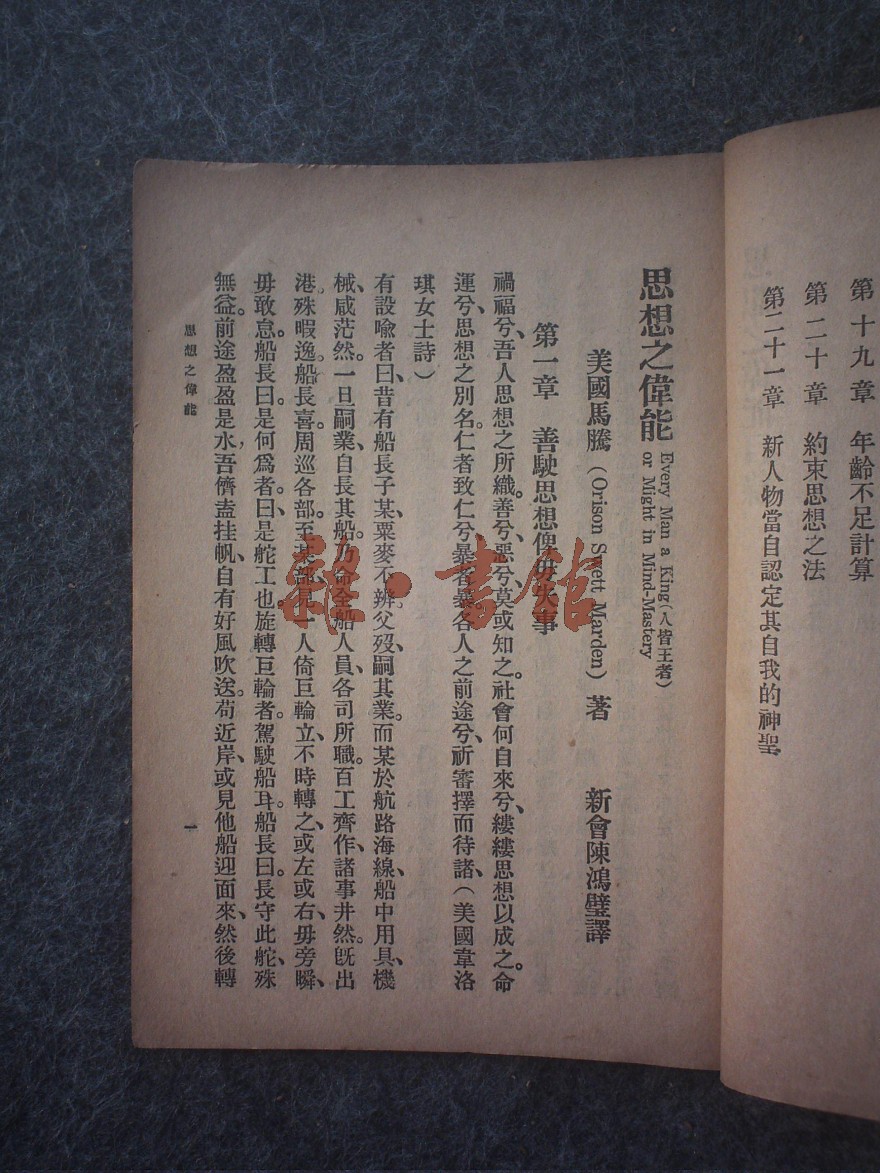 第十九章　年齡不足計算
第二十章　約束思想之法
第二十一章　新人物當自認定其自我的神聖
思想之偉能 Every Man a King(人皆王者)
or Might in Mind-Mastery
美國馬騰(Orison Swett Marden)著　新會陳鴻璧譯
第一章　善駛思想俾毋失事
禍福兮、吾人思想之所織。善兮、惡兮莫或知之。社會何自來兮、縷縷思想以成之。命
運兮、思想之別名。仁者致仁兮暴者暴。各人之前途兮、祈審擇而待諸、(美國韋洛
琪女士詩)
有設喩者曰、昔有船長子某、粟麥不辨。父歿、嗣其業。而某於航路海線、船中用具、機
械、咸茫然。一旦嗣業、自長其船。乃命全船人員、各司所職。百工齊作、諸事井然。旣出
港、殊暇逸。船長喜。周巡各部。至某部、見一人倚巨輪立、不時轉之、或左或右、毋旁瞬、
毋敢怠。船長曰。是何爲者。曰、是舵工也。旋轉巨輪者。駕駛船耳。船長曰。長守此舵、殊
無益。前途盈盈是水、吾儕盍挂帆、自有好風吹送。苟近岸、或見他船迎面來、然後轉
思想之偉能
一
雜·書館